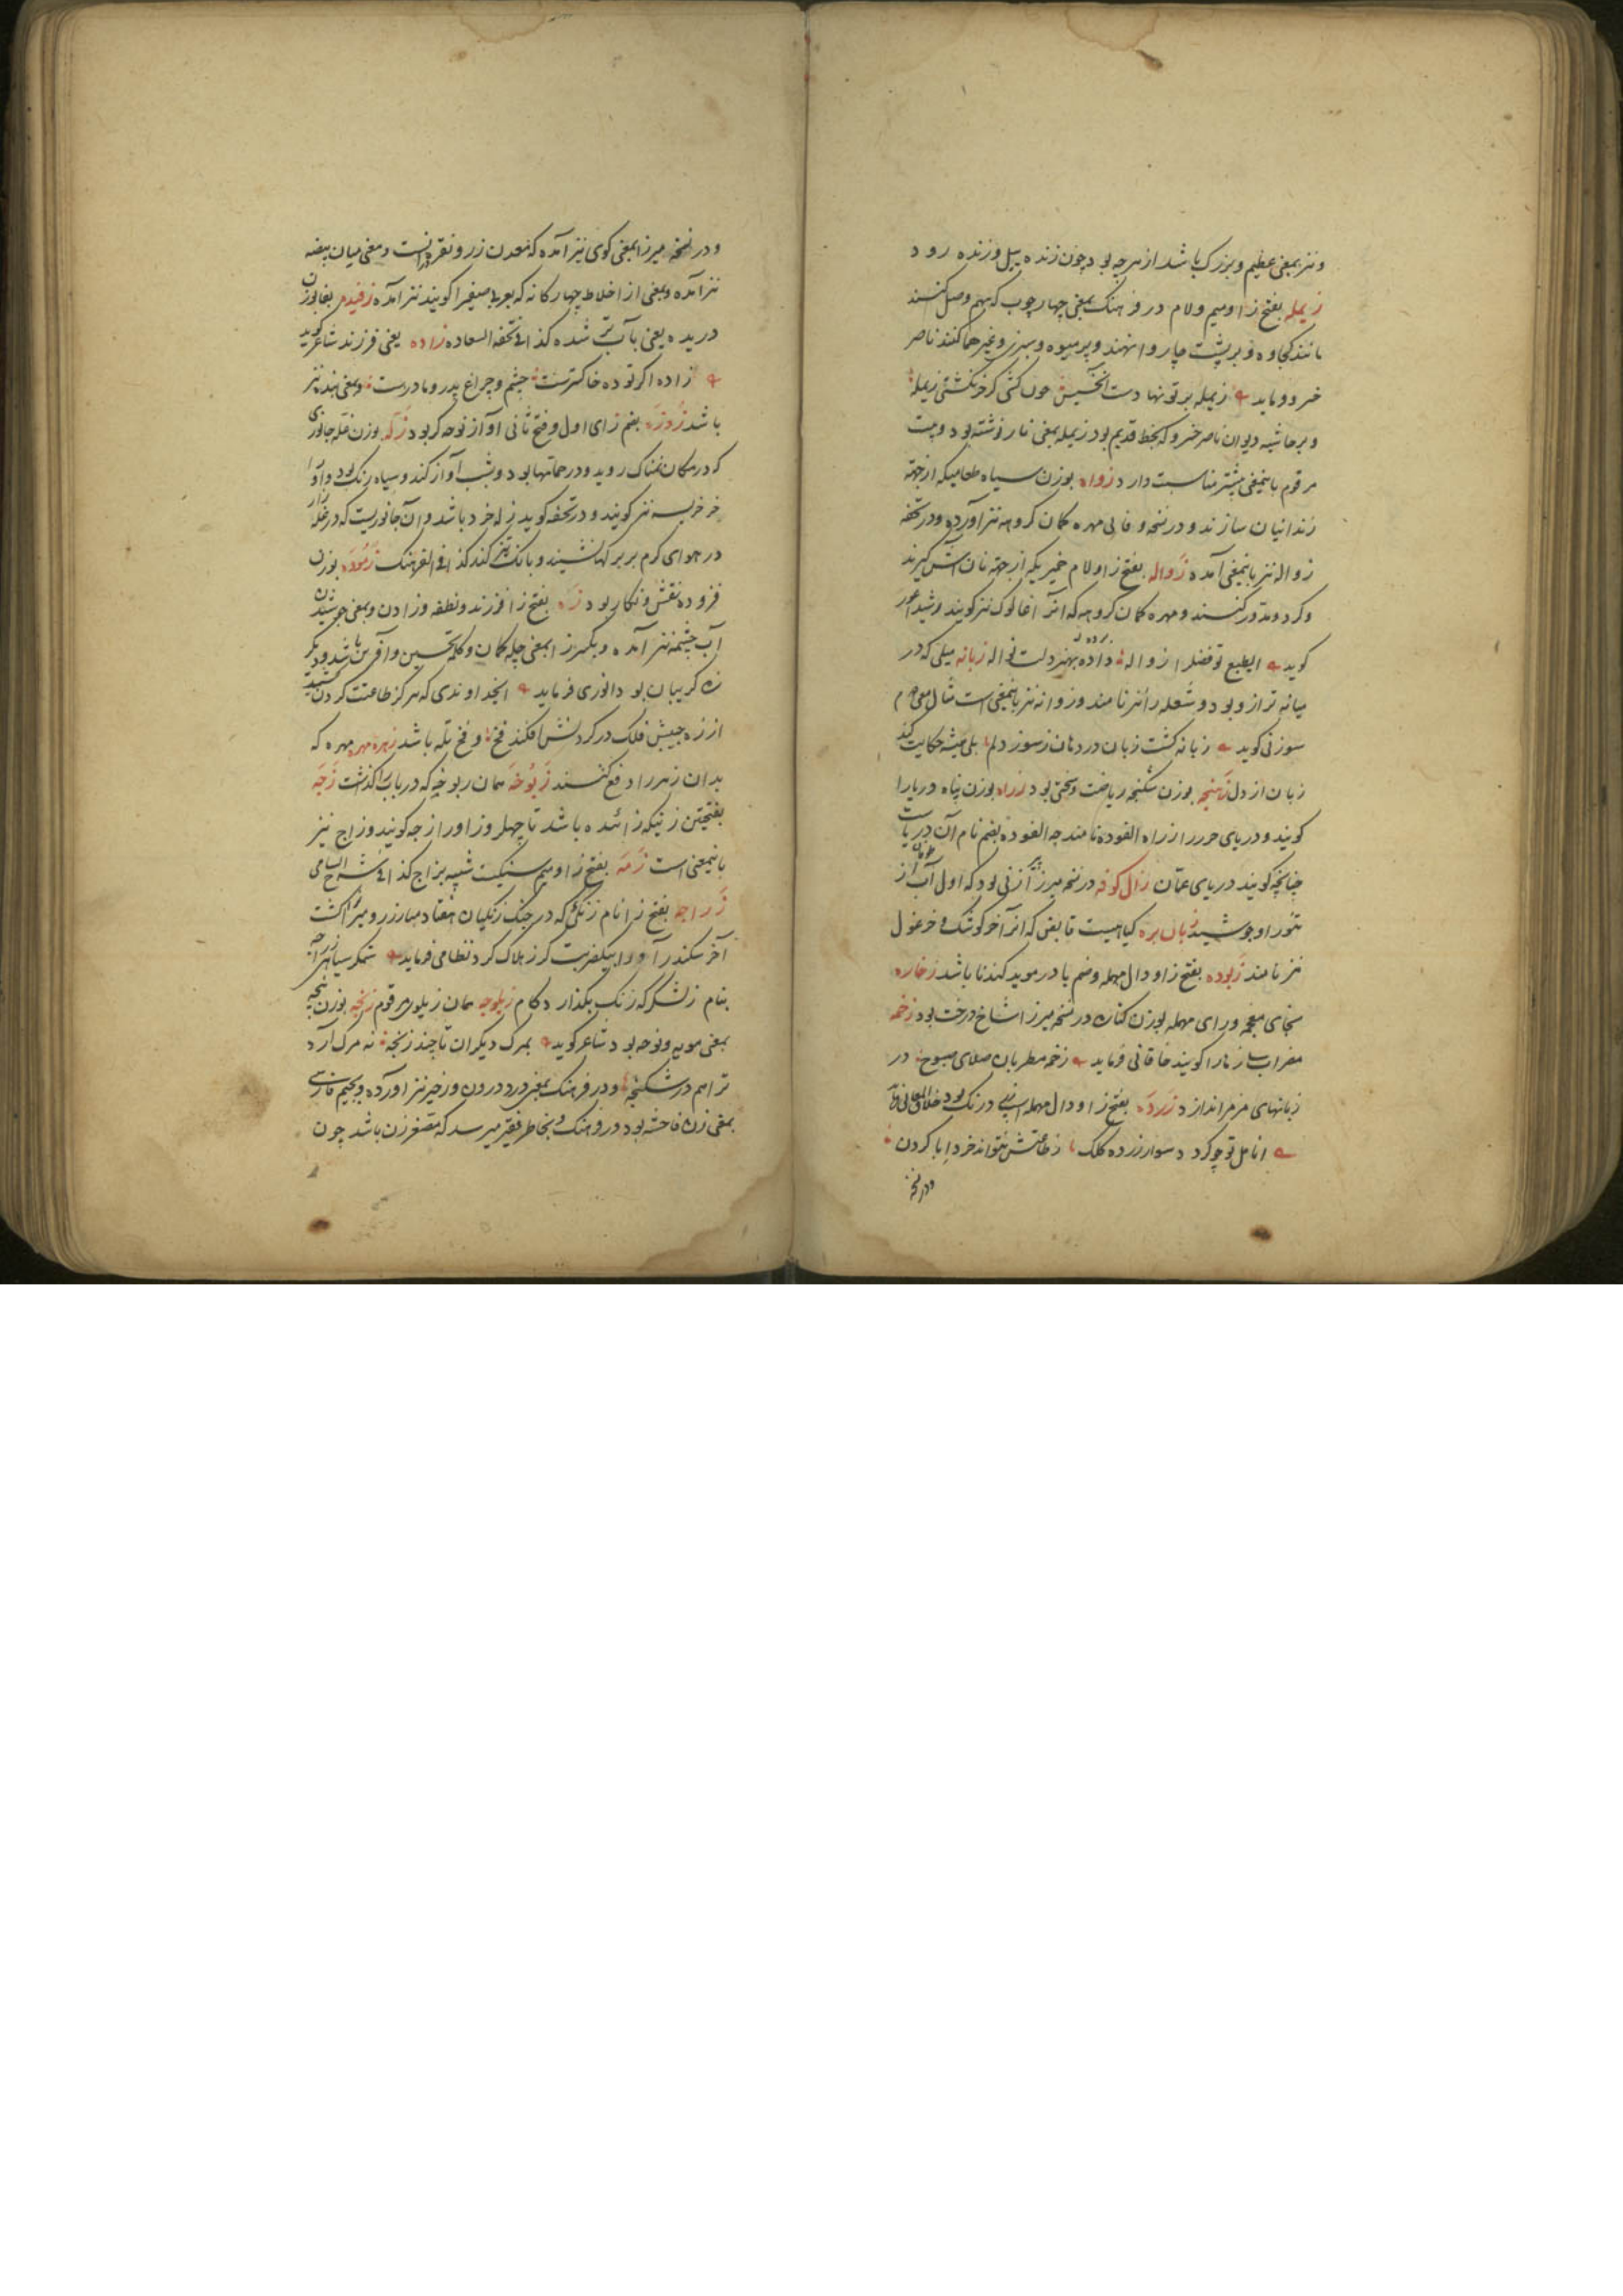 و نیز بمعنی عظیم و بزرک باشد از هر چه بود چون زنده پیل و زنده رود
زیمله بفتح زا و میم و لام در فرهنک بمعنی چهار چوب که بهم وصل کنند
مانند کجاوه و بر پشت چاروا نهند و پر میوه و سبزی و غیرهما کنند ناصر
خسرو فرماید زیمله بر تو نهاد دست خسیس چون کشی کر خر نکشتی زیمله
و بر حاشیه دیوان ناصر خسرو که بخط قدیم بود زیمله بمعنی نار نوشته بود و بیت
مرقوم باینمعنی بیشتر مناسبت دارد زواه بوزن سیاه طعامیکه از جهة
زندانیان سازند و در نسخه وفائی مهره کمان کروهه نیز آورده و در تحفه
زواله نیز باینمعنی آمده زواله بفتح زا و لام خمیریکه از جهة نان آش کیرند
و کرد و مدور کنند و مهره کمان کروهه که آنرا غالوک نیز کویند رشید اعور
کوید ای طبع تو فضل را زواله داده بهنر دلت نواله زبانه میلی که در
میانه ترازو بود و شعله را نیز نامند و زوانه نیز باینمعنی است مثال معنی دوم
سوزنی کوید زبانه کشت زبان در دهان ز سوز دلم بلی همیشه حکایت کند
زبان از دل زمنجه بوزن شکنجه ریاضت و سختی بود زراه بوزن پناه دریا را
کویند و دریای خزر را زراه الفوده نامند چه الفوده بضم نام آن دریاست
چنانچه کویند دریای عمان زال کوفه در نسخه میرزا زنی بود که اول آب طوفان از
تنور او جوشید زبان بره کیاهیست قابض که آنرا خرکوشک و خرغول
نیز نامند زبوده بفتح زا و دال مهمله و ضم با در موید کندنا باشد زخاره
بخای معجمه و رای مهمله بوزن کناره در نسخه میرزا شاخ درخت بود زخمه
مضراب سازها را کویند خاقانی فرماید زخمه مطربان صلای صبوح در
زبانهای مزمر اندازد زرده بفتح زا و دال مهمله اسپی زرد رنک بود خلاق المعانی فرماید
انامل تو چو کردد سوار زرده کلک ز طاعتش نتواند خرد ابا کردن
و در نسخه
و در نسخه میرزا بمعنی کوی نیز آمده که معدن زر و نقره در آنست و معنی میان بیضه
نیز آمده و بمعنی از اخلاط چهارکانه که بعربی صفرا کویند نیز آمده زفیده بفا بوزن
دریده یعنی بآب تر شده کذا فی تحفه السعاده زاده یعنی فرزند شاعر کوید
زاده اکر توده خاکسترست چشم و چراغ پدر و مادرست و بمعنی بنده نیز
باشد زوزه بضم زای اول و فتح ثانی آواز نوحه کر بود زله بوزن غله جانوری
که در مکان نمناک روید و در حمامها بود و بشب آواز کند و سیاه رنک بود و او را
خرخریسه نیز کویند و در تحفه کوید زله خرد باشد و آن جانوریست که در غله زار
در هوای کرم بر برکها نشیند و بانک تیز کند کذا فی الفرهنک زموده بوزن
فزوده نقش و نکار بود زه بفتح زا فرزند و نطفه و زادن و بمعنی جوشیدن
آب چشمه نیز آمده و بکسر زا بمعنی چله کمان و کلمه تحسین و آفرین باشد و دیکر
زه کریبان بود انوری فرماید ایخداوندی که هر کز طاعتت کردن کشید
از زه جیبش فلک در کردنش افکند فخ و فخ تله باشد زهره مهره مهره که
بدان زهر را دفع کنند زبوخه همان ربوخه که در باب را کذشت زجه
بفتحتین زنیکه زائیده باشد تا چهل روز او را زجه کویند و زاج نیز
باینمعنی است زمه بفتح زا و میم سنکیست شبیه بزاج کذا فی شرح السامی
زراجه بفتح زا نام زنکی که در جنک زنکیان هفتاد مبارز رومیرا کشت
آخر سکندر او را بیکضربت کرز هلاک کرد نظامی فرماید ستمکر سیاهی زراجه
بنام ز لشکر که زنک بکذارد کام زیلوچه همان زیلوی مرقوم زنجه بوزن پنجه
بمعنی مویه و نوحه بود شاعر کوید بمرک دیکران تا چند زنجه نه مرک آرد
ترا هم در شکنجه و در فرهنک بمعنی درد درون و زحیر نیز آورده و بجیم فارسی
بمعنی زن فاحشه بود در فرهنک و بخاطر فقیر میرسد که مصغر زن باشد چون